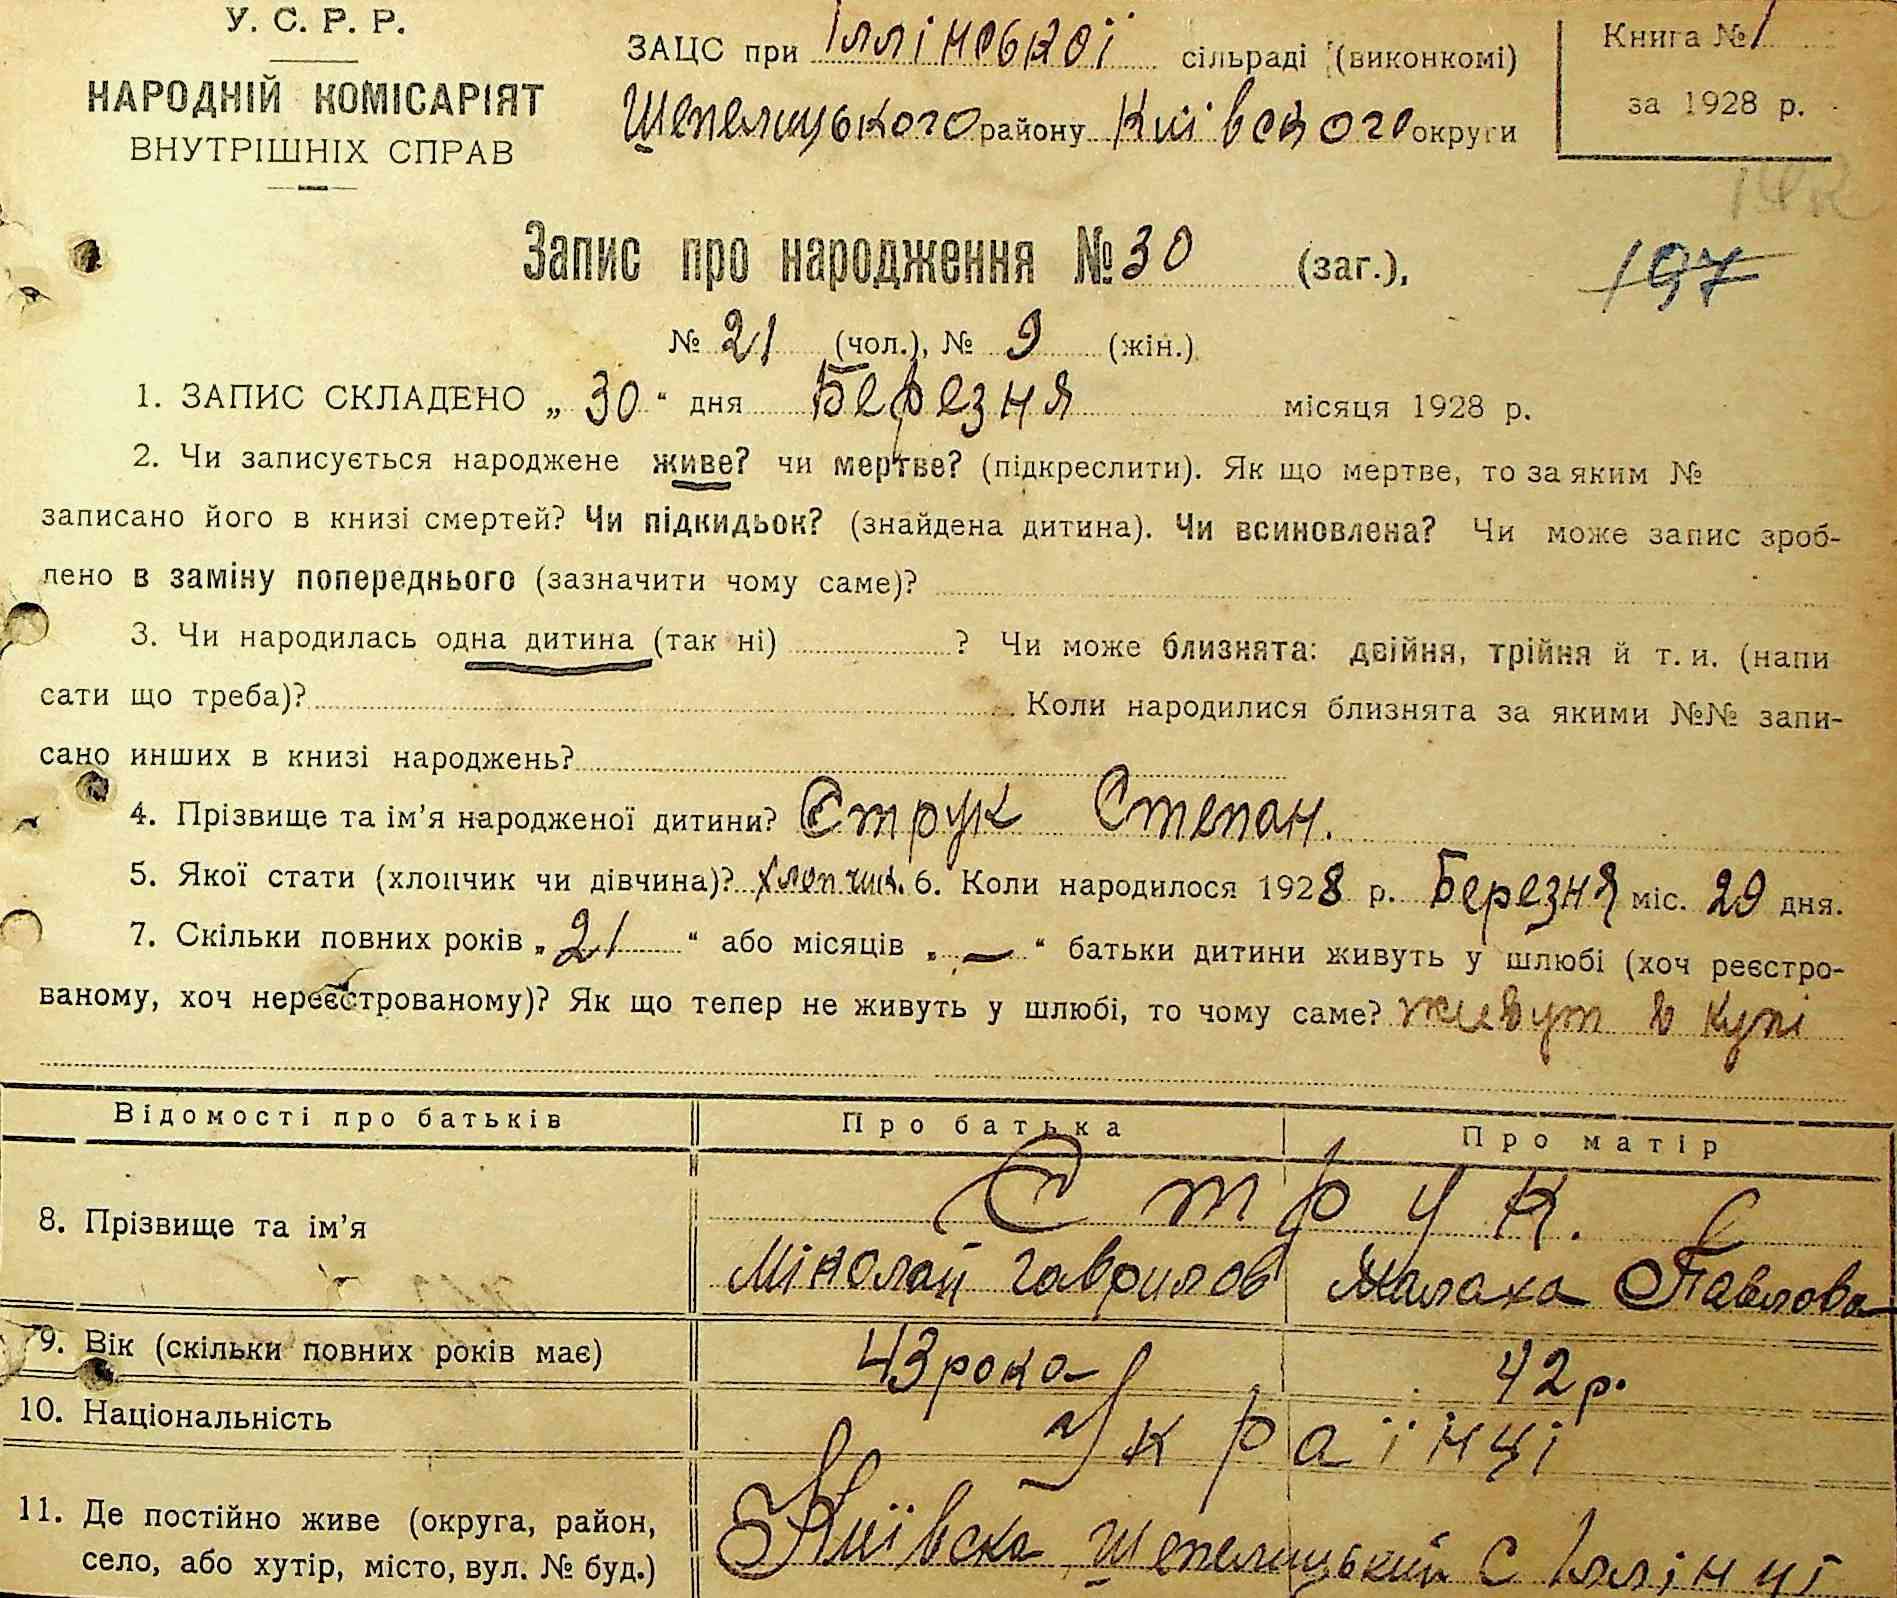 У. С. Р. Р.
НАРОДНІЙ КОМІСАРІЯТ
ВНУТРІШНІХ СПРАВ
ЗАЦС при Іллінської сільраді (виконкомі)
Шепелицького району Київського округи
Книга № 1
за 1928 р.
197
Запис про народження № 30 (заг.),
№ 21 (чол.), № 9 (жін.)
1. ЗАПИС СКЛАДЕНО „ 30 “ дня Березня місяця 1928 р.
2. Чи записується народжене живе? чи мертве? (підкреслити). Як що мертве, то за яким №
записано його в книзі смертей? Чи підкидьок? (знайдена дитина). Чи всиновлена? Чи може запис зроб-
лено в заміну попереднього (зазначити чому саме)?
3. Чи народилась одна дитина (так ні) ? Чи може близнята: двійня, трійня й т. и. (напи
сати що треба)? Коли народилися близнята за якими №№ запи-
сано инших в книзі народжень?
4. Прізвище та ім’я народженої дитини? Струк Степан.
5. Якої стати (хлопчик чи дівчина)? хлопчик. 6. Коли народилося 1928 р. Березня міс. 29 дня.
7. Скільки повних років „ 21 “ або місяців „ — “ батьки дитини живуть у шлюбі (хоч реєстро-
ваному, хоч нереєстрованому)? Як що тепер не живуть у шлюбі, то чому саме? живут в купі
Відомості про батьків Про батька Про матір
8. Прізвище та ім’я Струк.
Міколай Гаврилов Малаха Павлова
9. Вік (скільки повних років має) 43 рока 42 р.
10. Національність Українці
11. Де постійно живе (округа, район,
село, або хутір, місто, вул. № буд.) Київска Шепелицький с Іллінці